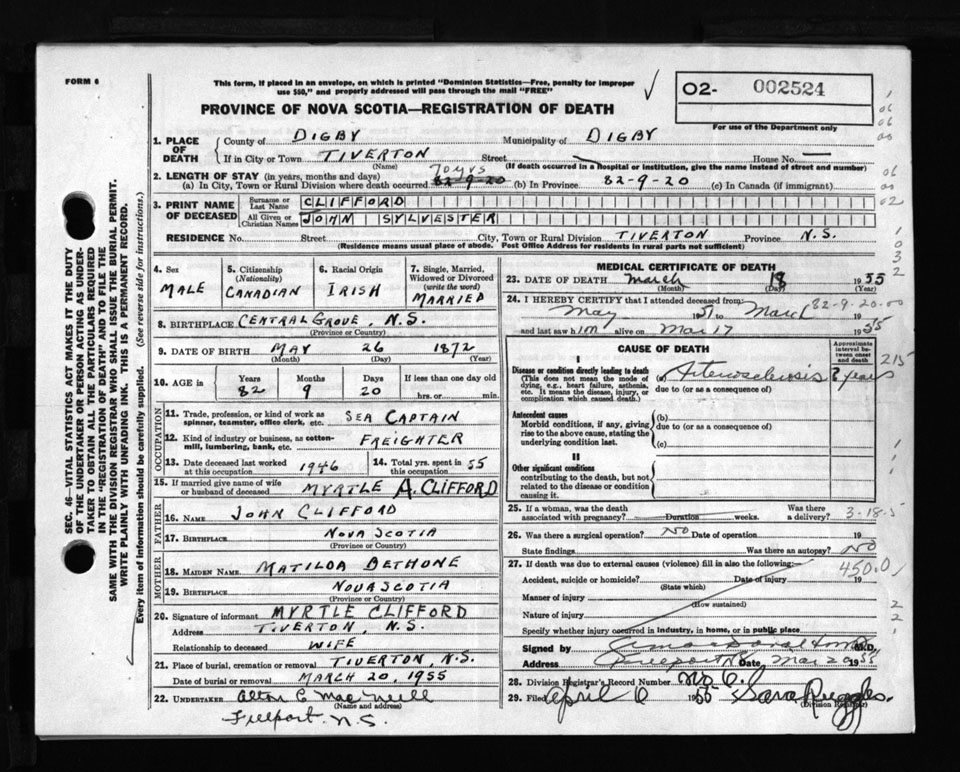 FORM 6
This form, if placed in an envelope, on which is printed "Dominion Statistics—Free, penalty for improper
use $50," and properly addressed will pass through the mail "FREE"
PROVINCE OF NOVA SCOTIA—REGISTRATION OF DEATH
O2- 002524
For use of the Department only
1. PLACE OF DEATH
County of DIGBY Municipality of DIGBY
If in City or Town TIVERTON Street House No. —
(Name) (If death occurred in a hospital or institution, give the name instead of street and number)
2. LENGTH OF STAY (in years, months and days)
70 yrs
(a) In City, Town or Rural Division where death occurred 82-9-20 (b) In Province 82-9-20 (c) In Canada (if immigrant)
3. PRINT NAME OF DECEASED
Surname or Last Name CLIFFORD
All Given or Christian Names JOHN SYLVESTER
RESIDENCE No. Street City, Town or Rural Division TIVERTON Province N.S.
(Residence means usual place of abode. Post Office Address for residents in rural parts not sufficient)
4. Sex MALE
5. Citizenship (Nationality) CANADIAN
6. Racial Origin IRISH
7. Single, Married, Widowed or Divorced (write the word) MARRIED
8. BIRTHPLACE CENTRAL GROVE, N.S.
(Province or Country)
9. DATE OF BIRTH MAY 26 1872
(Month) (Day) (Year)
10. AGE in Years Months Days If less than one day old
82 9 20 hrs. or min.
OCCUPATION
11. Trade, profession, or kind of work as spinner, teamster, office clerk, etc. SEA CAPTAIN
12. Kind of industry or business, as cotton-mill, lumbering, bank, etc. FREIGHTER
13. Date deceased last worked at this occupation 1946
14. Total yrs. spent in this occupation 55
15. If married give name of wife or husband of deceased MYRTLE A. CLIFFORD
FATHER
16. NAME JOHN CLIFFORD
17. BIRTHPLACE NOVA SCOTIA
(Province or Country)
MOTHER
18. MAIDEN NAME MATILDA BETHONE
19. BIRTHPLACE NOVA SCOTIA
(Province or Country)
20. Signature of informant MYRTLE CLIFFORD
Address TIVERTON, N.S.
Relationship to deceased WIFE
21. Place of burial, cremation or removal TIVERTON, N.S.
Date of burial or removal MARCH 20, 1955
22. UNDERTAKER Alton E MacNeill
(Name and address)
Freeport, N.S.
MEDICAL CERTIFICATE OF DEATH
23. DATE OF DEATH March 18 1955
(Month) (Day) (Year)
24. I HEREBY CERTIFY that I attended deceased from 82-9-20-00
May 1951 to March 1955
and last saw him alive on Mar 17
CAUSE OF DEATH
Approximate interval between onset and death
I
Disease or condition directly leading to death
(This does not mean the mode of dying, e.g., heart failure, asthenia, etc. It means the disease, injury, or complication which caused death.)
(a) Arteriosclerosis ? years 215
due to (or as a consequence of)
Antecedent causes
Morbid conditions, if any, giving rise to the above cause, stating the underlying condition last.
(b)
due to (or as a consequence of)
(c)
II
Other significant conditions
contributing to the death, but not related to the disease or condition causing it.
25. If a woman, was the death associated with pregnancy? Duration weeks. Was there a delivery? 3-18-5
26. Was there a surgical operation? No Date of operation 19
State findings Was there an autopsy? No
27. If death was due to external causes (violence) fill in also the following:— 450.0
Accident, suicide or homicide? Date of injury 19
(State which)
Manner of injury
(How sustained)
Nature of injury
Specify whether injury occurred in industry, in home, or in public place
Signed by M.D.
Address Freeport NS Date Mar 20 1955
28. Division Registrar's Record Number No 6.
29. Filed April 6 1955 Sara Ruggles.
(Division Registrar)
SEC. 46—VITAL STATISTICS ACT MAKES IT THE DUTY
OF THE UNDERTAKER OR PERSON ACTING AS UNDER-
TAKER TO OBTAIN ALL THE PARTICULARS REQUIRED
IN THE "REGISTRATION OF DEATH" AND TO FILE THE
SAME WITH THE DIVISION REGISTRAR WHO SHALL ISSUE THE BURIAL PERMIT.
WRITE PLAINLY WITH UNFADING INK. THIS IS A PERMANENT RECORD.
Every item of information should be carefully supplied. (See reverse side for instructions.)